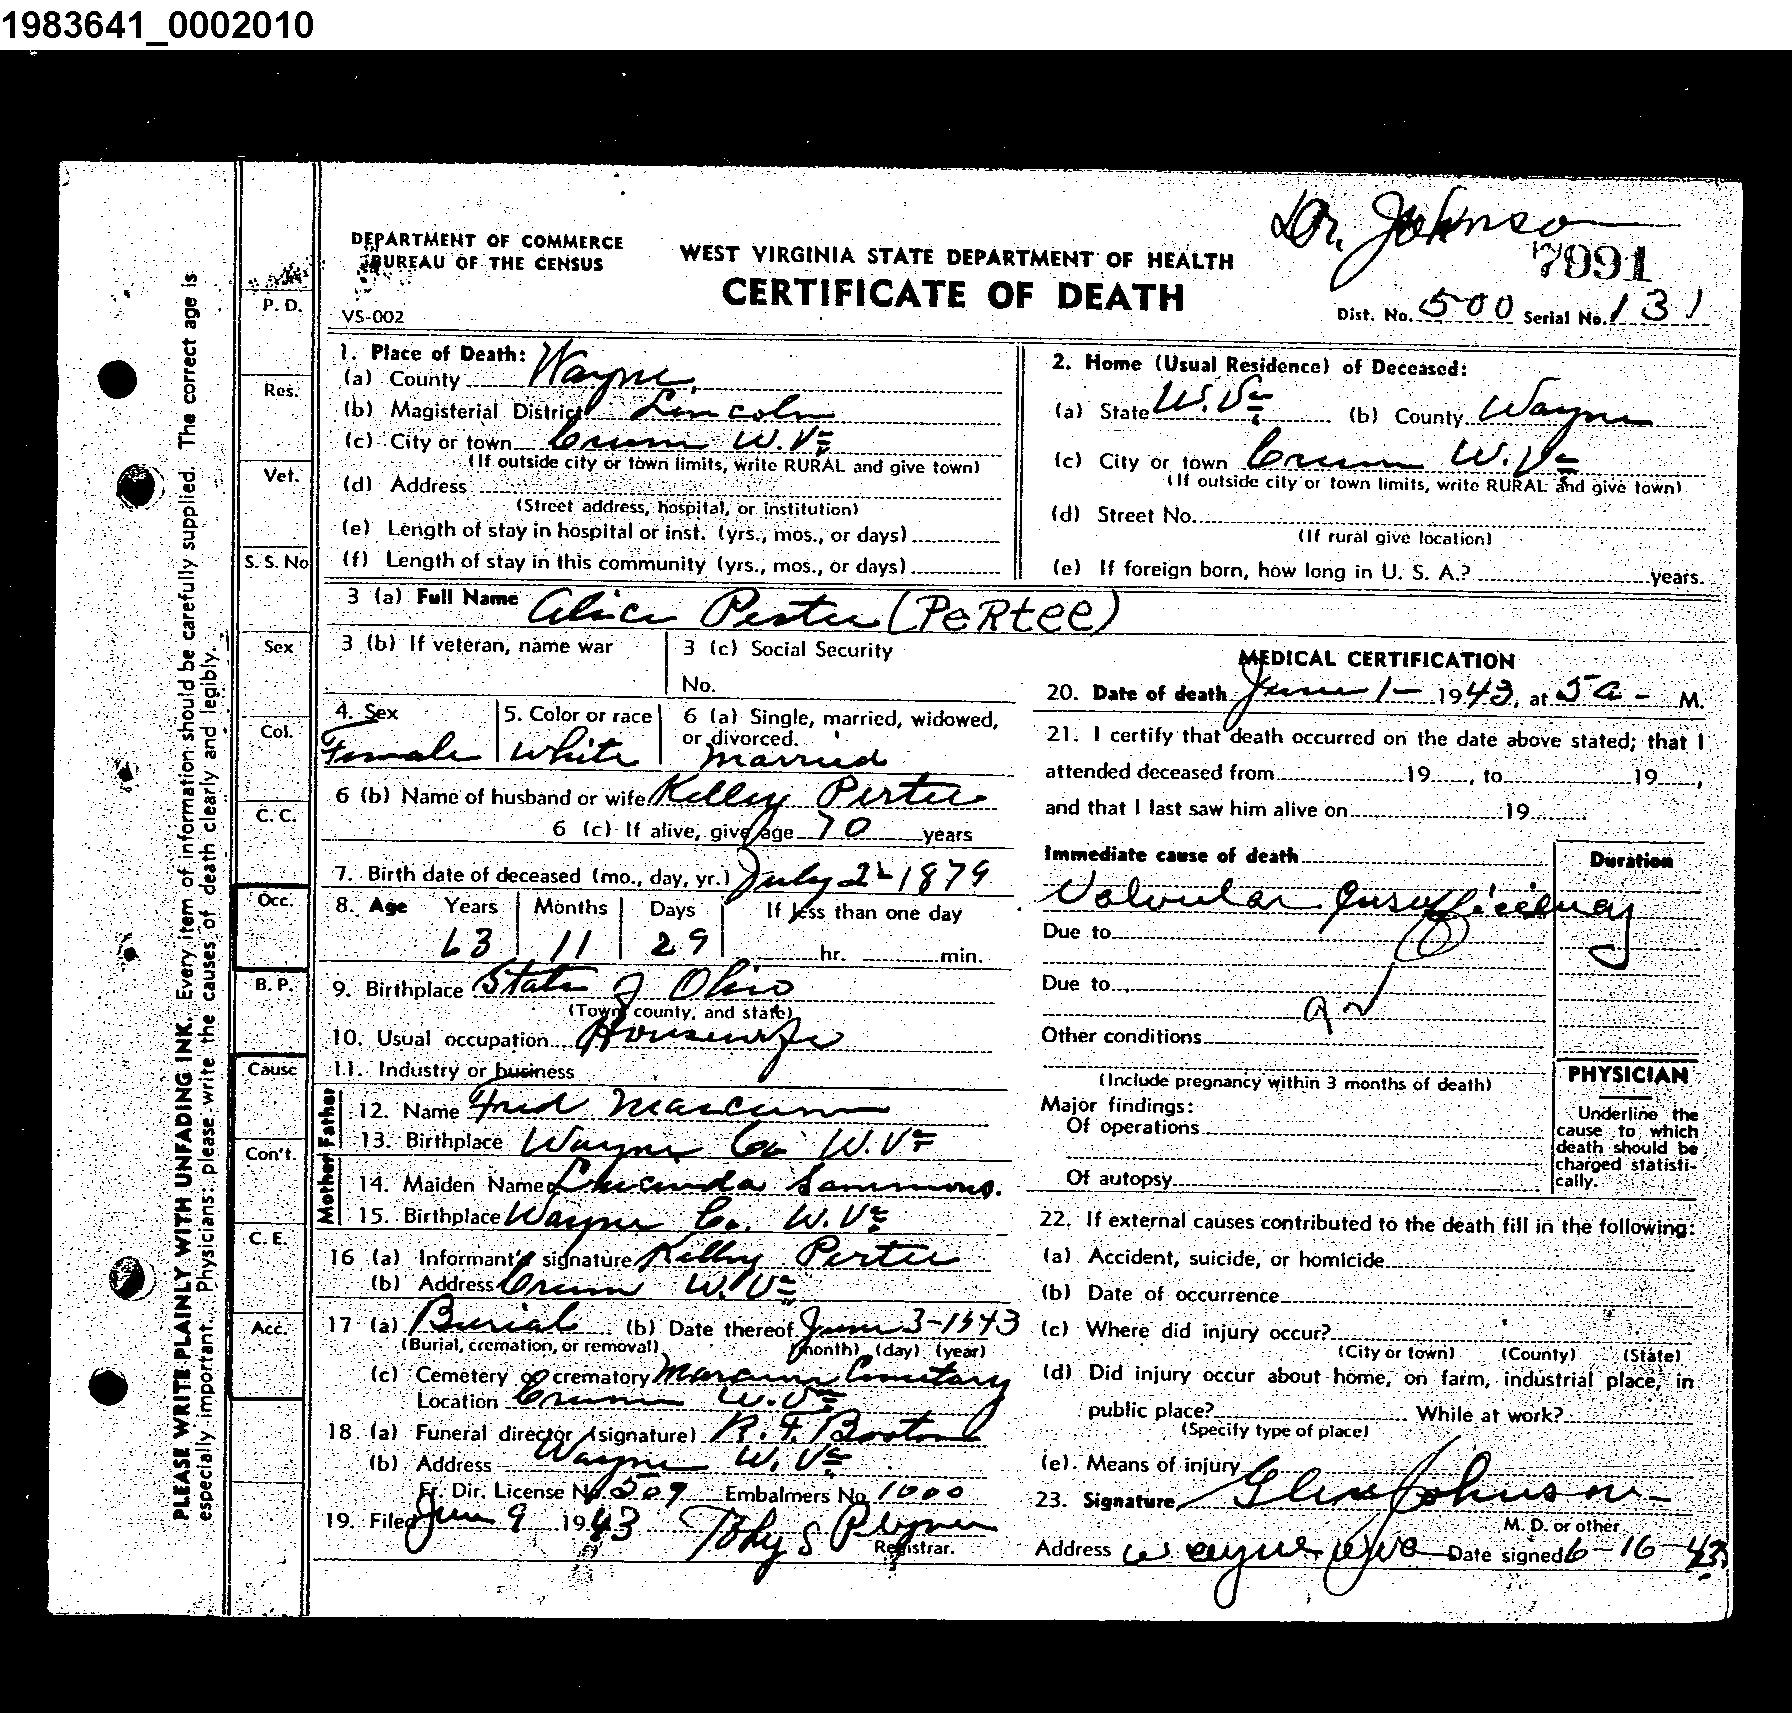 1983641_0002010
Dr. Johnson
DEPARTMENT OF COMMERCE
BUREAU OF THE CENSUS
WEST VIRGINIA STATE DEPARTMENT OF HEALTH
7991
CERTIFICATE OF DEATH
VS-002
Dist. No. 500 Serial No. 131
PLEASE WRITE PLAINLY WITH UNFADING INK. Every item of information should be carefully supplied. The correct age is
especially important. Physicians: please write the causes of death clearly and legibly.
P. D.
Res.
Vet.
S. S. No
Sex
Col.
C. C.
Occ.
B. P.
Cause
Con't.
C. E.
Acc.
1. Place of Death:
(a) County Wayne
(b) Magisterial District Lincoln
(c) City or town Crum W. Va
(If outside city or town limits, write RURAL and give town)
(d) Address
(Street address, hospital, or institution)
(e) Length of stay in hospital or inst. (yrs., mos., or days)
(f) Length of stay in this community (yrs., mos., or days)
2. Home (Usual Residence) of Deceased:
(a) State W. Va (b) County Wayne
(c) City or town Crum W. Va
(If outside city or town limits, write RURAL and give town)
(d) Street No.
(If rural give location)
(e) If foreign born, how long in U. S. A.? years.
3 (a) Full Name Alice Pertee (PeRtee)
3 (b) If veteran, name war
3 (c) Social Security
No.
4. Sex
Female
5. Color or race
White
6 (a) Single, married, widowed,
or divorced.
Married
6 (b) Name of husband or wife Kelley Pertee
6 (c) If alive, give age 70 years
7. Birth date of deceased (mo., day, yr.) July 2 - 1879
8. Age Years Months Days If less than one day
63 11 29 hr. min.
9. Birthplace State of Ohio
(Town, county, and state)
10. Usual occupation Housewife
11. Industry or business
Father
12. Name Fred Marcum
13. Birthplace Wayne Co W. Va
Mother
14. Maiden Name Lucinda Sammons.
15. Birthplace Wayne Co. W. Va
16 (a) Informant's signature Kelley Pertee
(b) Address Crum W. Va
17 (a) Burial (b) Date thereof June 3-1943
(Burial, cremation, or removal) (month) (day) (year)
(c) Cemetery or crematory Marcum Cemetary
Location Crum W. Va
18 (a) Funeral director (signature) R. F. Booton
(b) Address Wayne W. Va
Fr. Dir. License No 509 Embalmers No. 1000
19. Filed June 9 1943
Registrar.
MEDICAL CERTIFICATION
20. Date of death June 1- 1943, at 5 a - M.
21. I certify that death occurred on the date above stated; that I
attended deceased from 19 , to 19 ,
and that I last saw him alive on 19
Immediate cause of death
Duration
Valvular Insufficiency
Due to
Due to
Other conditions
(Include pregnancy within 3 months of death)
Major findings:
Of operations
Of autopsy
PHYSICIAN
Underline the
cause to which
death should be
charged statisti-
cally.
22. If external causes contributed to the death fill in the following:
(a) Accident, suicide, or homicide
(b) Date of occurrence
(c) Where did injury occur?
(City or town) (County) (State)
(d) Did injury occur about home, on farm, industrial place, in
public place? While at work?
(Specify type of place)
(e) Means of injury
23. Signature Glenn Johnson
M. D. or other
Address Wayne, W Va Date signed 6-16-43